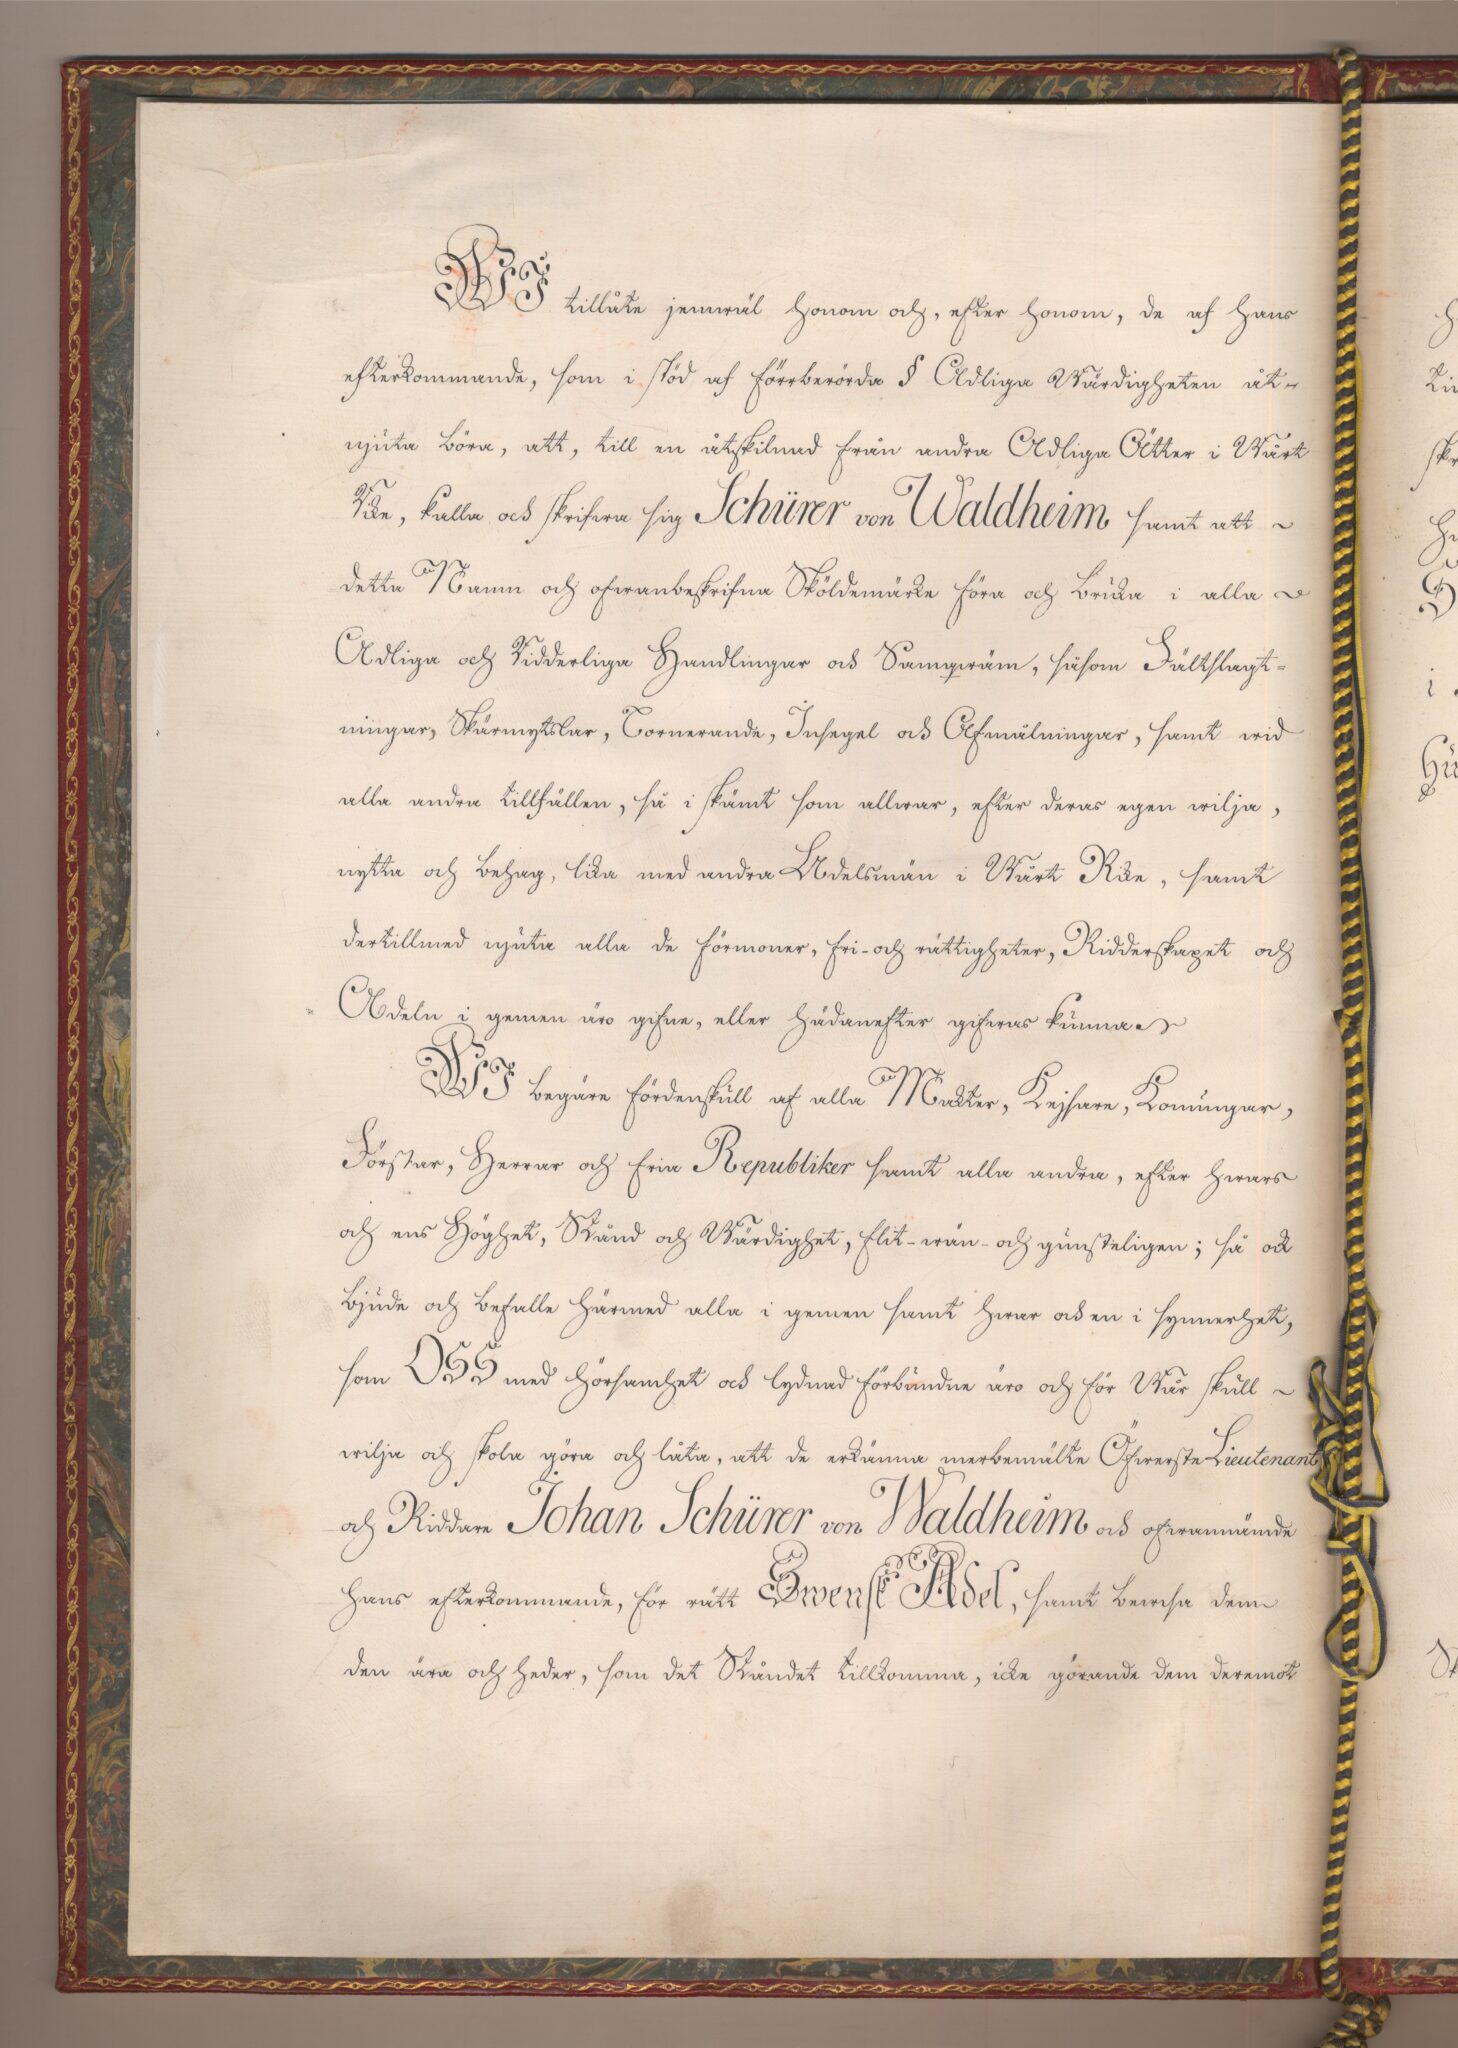 WI tillåte jemwäl honom och, efter honom, de af hans
efterkommande, som i stöd af förrberörda § Adliga Wärdigheten åt-
njuta böra, att, till en åtskilnad från andra Adliga Ätter i Wårt
Rike, kalla och skrifwa sig Schürer von Waldheim samt att
detta Namn och ofwanbeskrifna Sköldemärke föra och bruka i alla
Adliga och Ridderliga Handlingar och Samqwäm, såsom Fältslagt-
ningar, Skärmytslar, Tornerande, Insegel och Afmålningar, samt wid
alla andra tillfällen, så i skämt som allwar, efter deras egen wilja,
nytta och behag, lika med andra Adelsmän i Wårt Rike, samt
dertillmed njuta alla de förmoner, fri- och rättigheter, Ridderskapet och
Adeln i gemen äro gifne, eller hädanefter gifwas kunna.
WI begäre fördenskull af alla Makter, Kejsare, Konungar,
Förstar, Herrar och fria Republiker samt alla andra, efter hwars
och ens Höghet, Stånd och Wärdighet, flit- wän- och gunsteligen; så ock
bjude och befalle härmed alla i gemen samt hwar och en i synnerhet,
som OSS med hörsamhet och lydnad förbundne äro och för Wår skull
wilja och skola göra och låta, att de erkänna merbemälte Öfwerste Lieutenant
och Riddare Johan Schürer von Waldheim och ofwannämde
hans efterkommande, för rätt Swensk Adel, samt bewisa dem
den ära och heder, som det Ståndet tillkomma, icke görande dem deremot